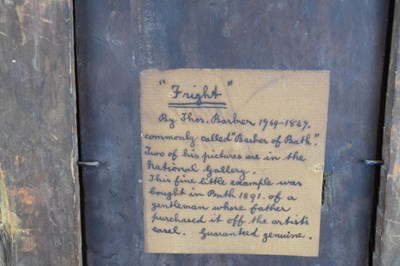 "Fright"
By Thos. Barker 1769-1847.
commonly called "Barker of Bath".
Two of his pictures are in the
National Gallery.
This fine little example was
bought in Bath 1891. of a
gentleman whose father
purchased it off the artists
easel. Guaranteed genuine.